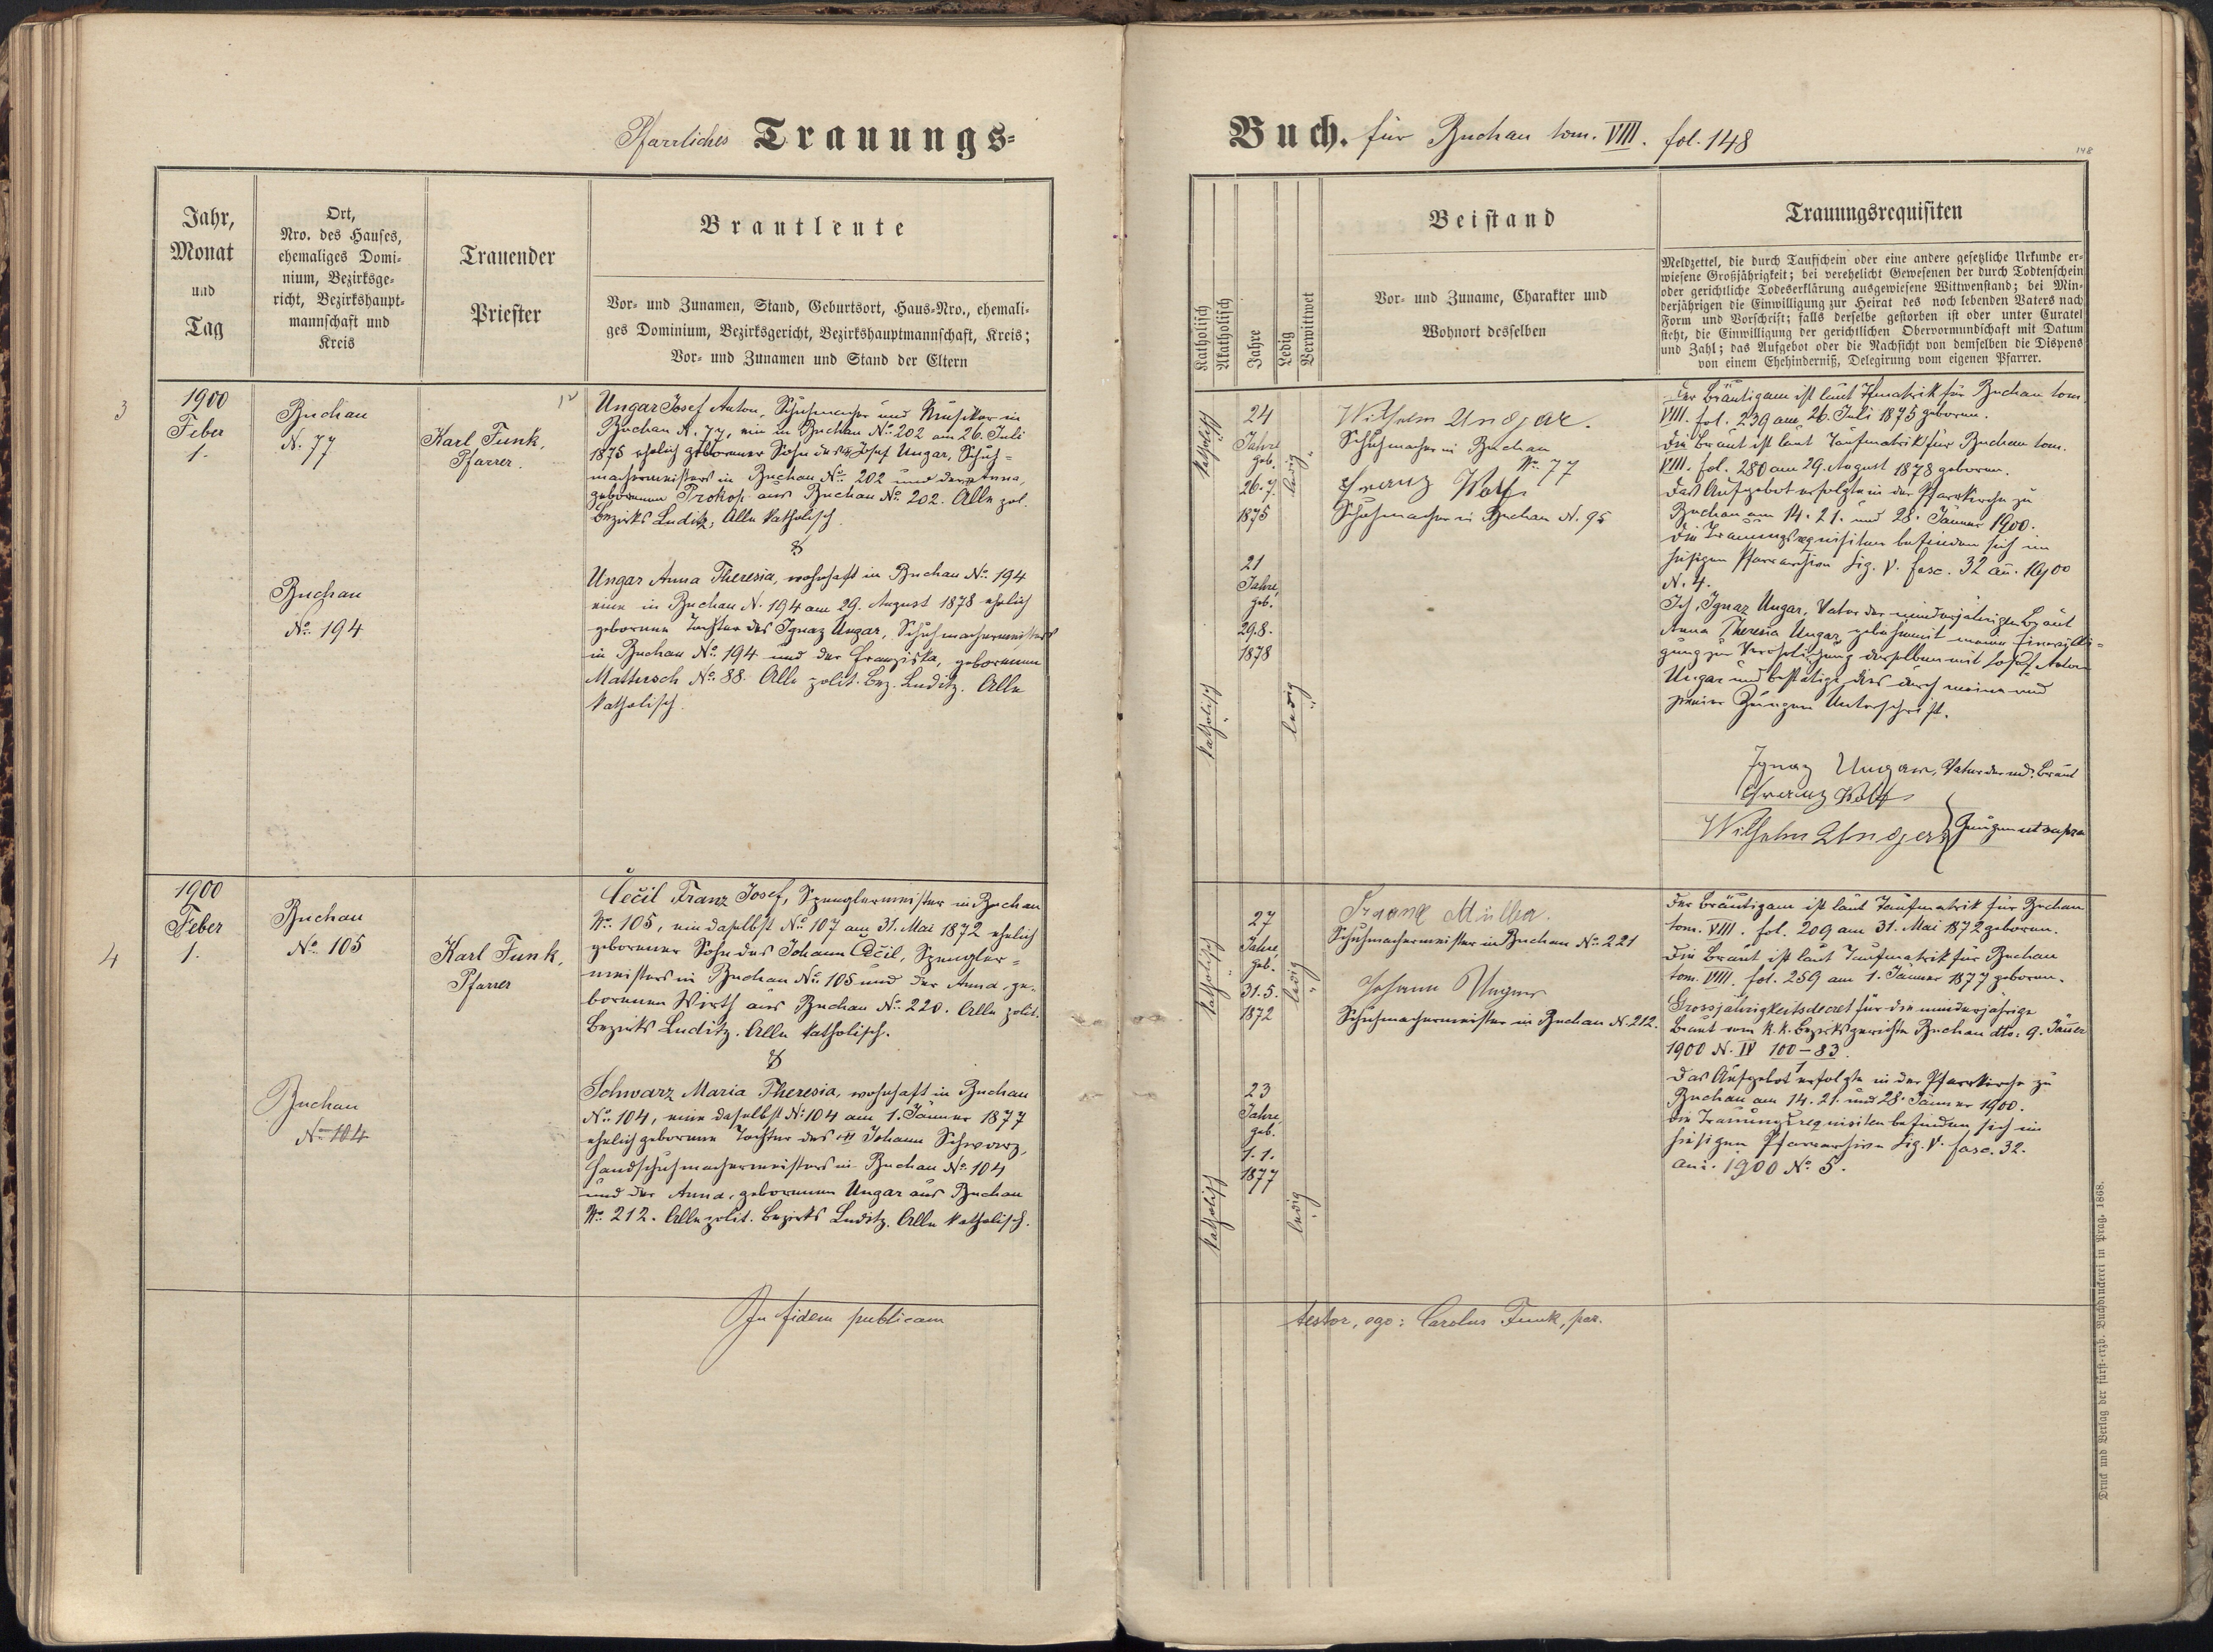 Pfarrliches Trauungs-
Jahr,
Monat
und
Tag
Ort,
Nro. des Hauses,
ehemaliges Domi-
nium, Bezirksge-
richt, Bezirkshaupt-
mannschaft und
Kreis
Trauender
Priester
Brautleute
Vor- und Zunamen, Stand, Geburtsort, Haus-Nro., ehemali-
ges Dominium, Bezirksgericht, Bezirkshauptmannschaft, Kreis;
Vor- und Zunamen und Stand der Eltern
3
1900
Feber
1.
Buchau
N. 77
Karl Funk,
Pfarrer.
Ungar Josef Anton, Schuhmacher und Musiker in
Buchau N. 77, ein in Buchau No. 202 am 26. Juli
1875 ehelich geborener Sohn des Josef Ungar, Schuh-
machermeisters in Buchau No. 202 und der Anna,
geborenen Prokop aus Buchau No. 202. Alle pol.
Bezirks Luditz, Alle katholisch.
&
Buchau
No. 194
Ungar Anna Theresia, wohnhaft in Buchau No. 194
eine in Buchau N. 194 am 29. August 1878 ehelich
geborene Tochter des Ignaz Ungar, Schuhmachermeisters
in Buchau No. 194 und der Franziska, geborenen
Mattersch No. 88. Alle polit. Bez. Luditz. Alle
katholisch.
4
1900
Feber
1.
Buchau
No. 105
Karl Funk,
Pfarrer
Čečil Franz Josef, Spenglermeister in Buchau
No. 105, ein daselbst No. 107 am 31. Mai 1872 ehelich
geborener Sohn des Johann Čečil, Spengler-
meisters in Buchau No. 105 und der Anna, ge-
borenen Wirth aus Buchau No. 220. Alle polit.
Bezirks Luditz. Alle katholisch.
&
Buchau
No. 104
Schwarz Maria Theresia, wohnhaft in Buchau
No. 104, eine daselbst N. 104 am 1. Jänner 1877
ehelich geborene Tochter des Johann Schwarz,
Handschuhmachermeisters in Buchau No. 104
und der Anna, geborenen Ungar aus Buchau
No. 212. Alle polit. Bezirks Luditz. Alle katholisch.
In fidem publicam
Buch. für Buchau tom. VIII. fol. 148
148
Katholisch
Akatholisch
Jahre
Ledig
Verwittwet
Beistand
Vor- und Zuname, Charakter und
Wohnort desselben
Trauungsrequisiten
Meldzettel, die durch Taufschein oder eine andere gesetzliche Urkunde er-
wiesene Großjährigkeit; bei verehelicht Gewesenen der durch Todtenschein
oder gerichtliche Todeserklärung ausgewiesene Wittwenstand; bei Min-
derjährigen die Einwilligung zur Heirat des noch lebenden Vaters nach
Form und Vorschrift; falls derselbe gestorben ist oder unter Curatel
steht, die Einwilligung der gerichtlichen Obervormundschaft mit Datum
und Zahl; das Aufgebot oder die Nachsicht von demselben die Dispens
von einem Ehehinderniß, Delegirung vom eigenen Pfarrer.
katholisch
24
Jahre
geb.
26.7.
1875
ledig
Wilhelm Ungar.
Schuhmacher in Buchau
No. 77
Franz Wolf
Schuhmacher in Buchau N. 95
katholisch
21
Jahre,
geb.
29.8.
1878
ledig
Der Bräutigam ist laut Tfmatrik für Buchau tom.
VIII. fol. 239 am 26. Juli 1875 geboren.
Die Braut ist laut Taufmatrik für Buchau tom.
VIII. fol. 280 am 29. August 1878 geboren.
Das Aufgebot erfolgte in der Pfarrkirche zu
Buchau am 14. 21. und 28. Jänner 1900.
Die Trauungsrequisiten befinden sich im
hiesigen Pfarrarchive Lig. V. fasc. 32 an. 1900
N. 4.
Ich, Ignaz Ungar, Vater der minderjährigen Braut
Anna Theresia Ungar gebe hiemit meine Einwilli-
gung zur Verehelichung derselben mit Josef Anton
Ungar und bestätige dies durch meine und
zweier Zeugen Unterschrift.
Ignaz Ungar, Vater der mdj. Braut
Franz Wolf
Wilhelm Ungar } Zeugen ut supra
katholisch
27
Jahre,
geb.
31.5.
1872
ledig
Franz Müller.
Schuhmachermeister in Buchau No. 221
Johann Ungar
Schuhmachermeister in Buchau N. 212.
katholisch
23
Jahre,
geb.
1.1.
1877
ledig
Der Bräutigam ist laut Taufmatrik für Buchau
tom. VIII. fol. 209 am 31. Mai 1872 geboren.
Die Braut ist laut Taufmatrik für Buchau
tom. VIII. fol. 259 am 1. Jänner 1877 geboren.
Grossjährigkeitsdecret für die minderjährige
Braut vom k. k. Bezirksgerichte Buchau dto: 9. Jänner
1900 N. IV 100-83.
Das Aufgebot erfolgte in der Pfarrkirche zu
Buchau am 14. 21. und 28. Jänner 1900.
Die Trauungsrequisiten befinden sich im
hiesigen Pfarrarchive Lig. V. fasc. 32.
ani. 1900 No. 5.
testor, ego: Carolus Funk, par.
Druck und Verlag der fürst-erzb. Buchdruckerei in Prag. 1868.